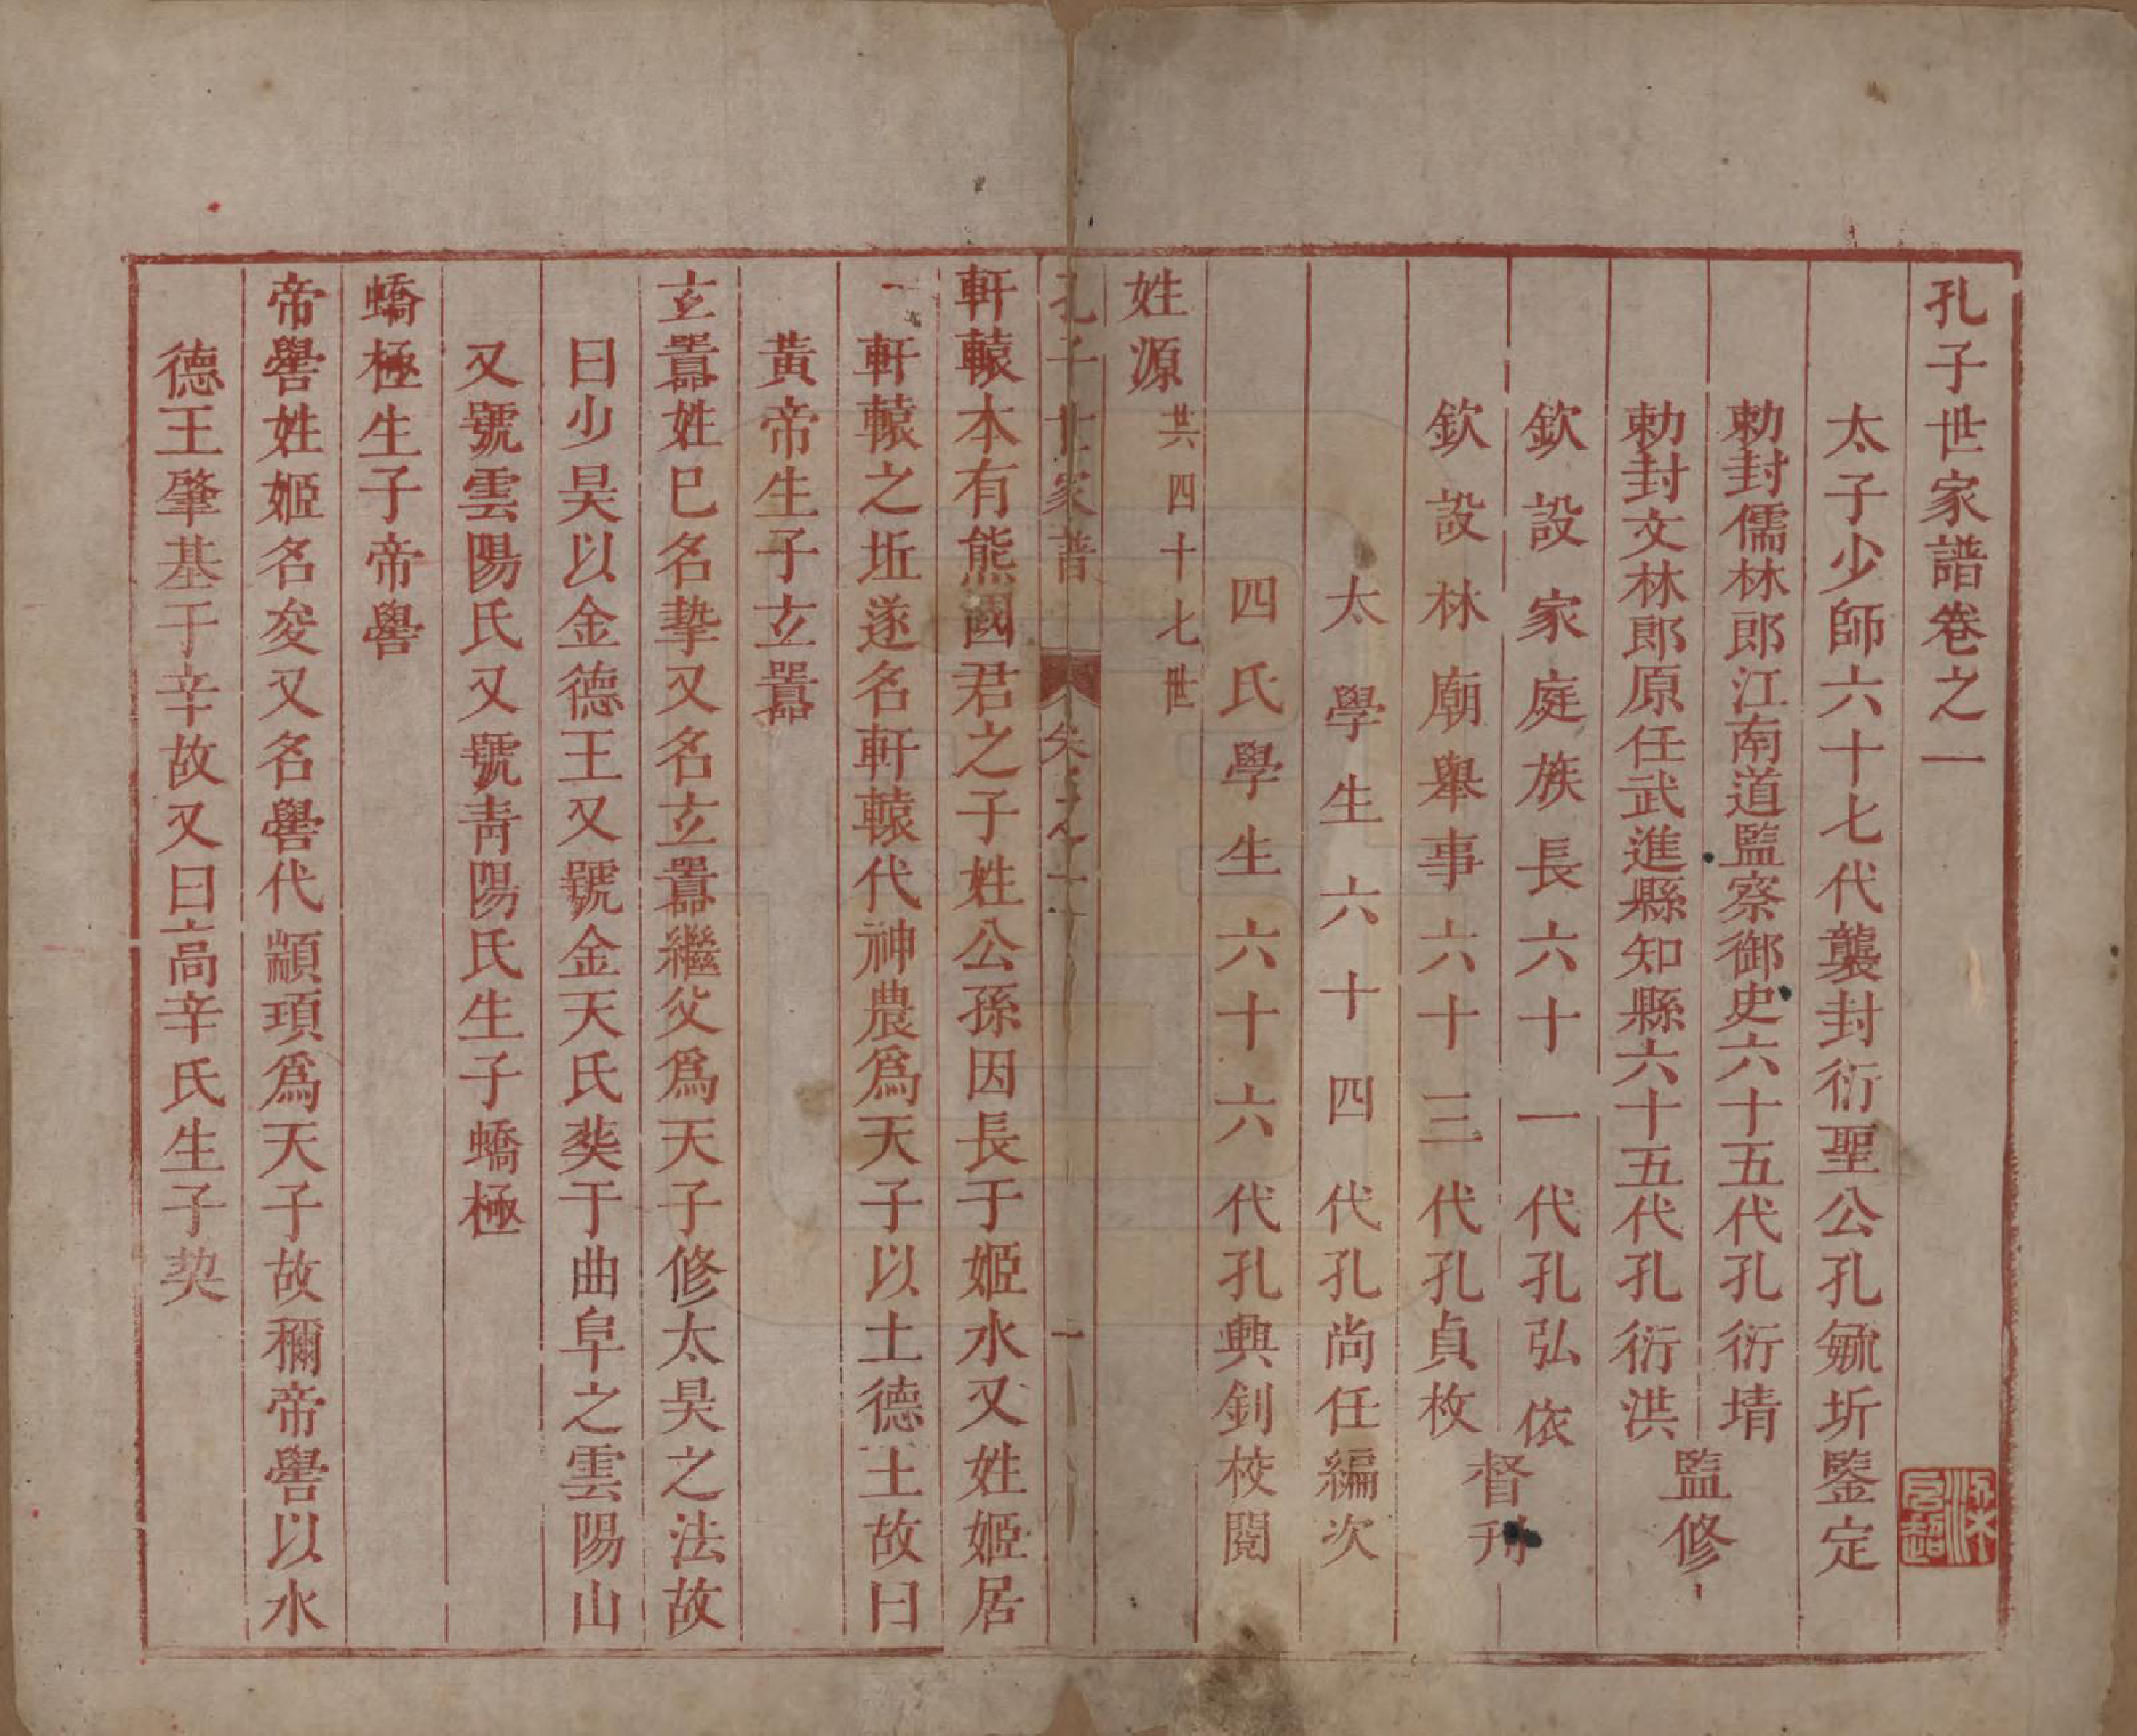 孔子世家譜卷之一
太子少師六十七代襲封衍聖公孔毓圻鑒定
勅封儒林郎江南道監察御史六十五代孔衍堉
勅封文林郎原任武進縣知縣六十五代孔衍洪
監修
欽設家庭族長六十一代孔弘依
欽設林廟舉事六十三代孔貞枚
督刋
太學生六十四代孔尚任編次
四氏學生六十六代孔興釗校閱
姓源共四十七世
孔子世家譜 卷之 一
軒轅本有熊國君之子姓公孫因長于姬水又姓姬居
軒轅之坵遂名軒轅代神農爲天子以土德土故曰
黃帝生子玄囂
玄囂姓巳名摯又名玄囂繼父爲天子修太昊之法故
曰少昊以金德王又號金天氏塟于曲阜之雲陽山
又號雲陽氏又號靑陽氏生子蟜極
蟜極生子帝嚳
帝嚳姓姬名夋又名嚳代顓頊爲天子故穪帝嚳以水
德王肇基于辛故又曰高辛氏生子契